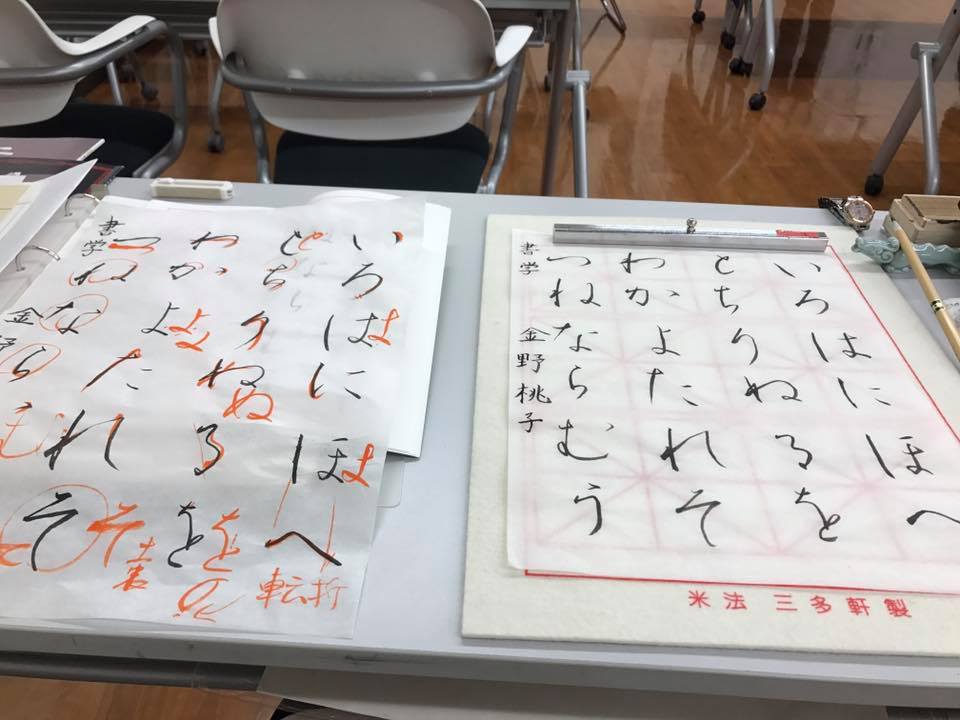 いろはにほへ
とちりぬるを
わかよたれそ
つねなら
書学 金野
よ
ぬ
む
そ
を
転折
いろはにほへ
とちりぬるを
わかよたれそ
つねならむう
書学 金野桃子
米法 三多軒製